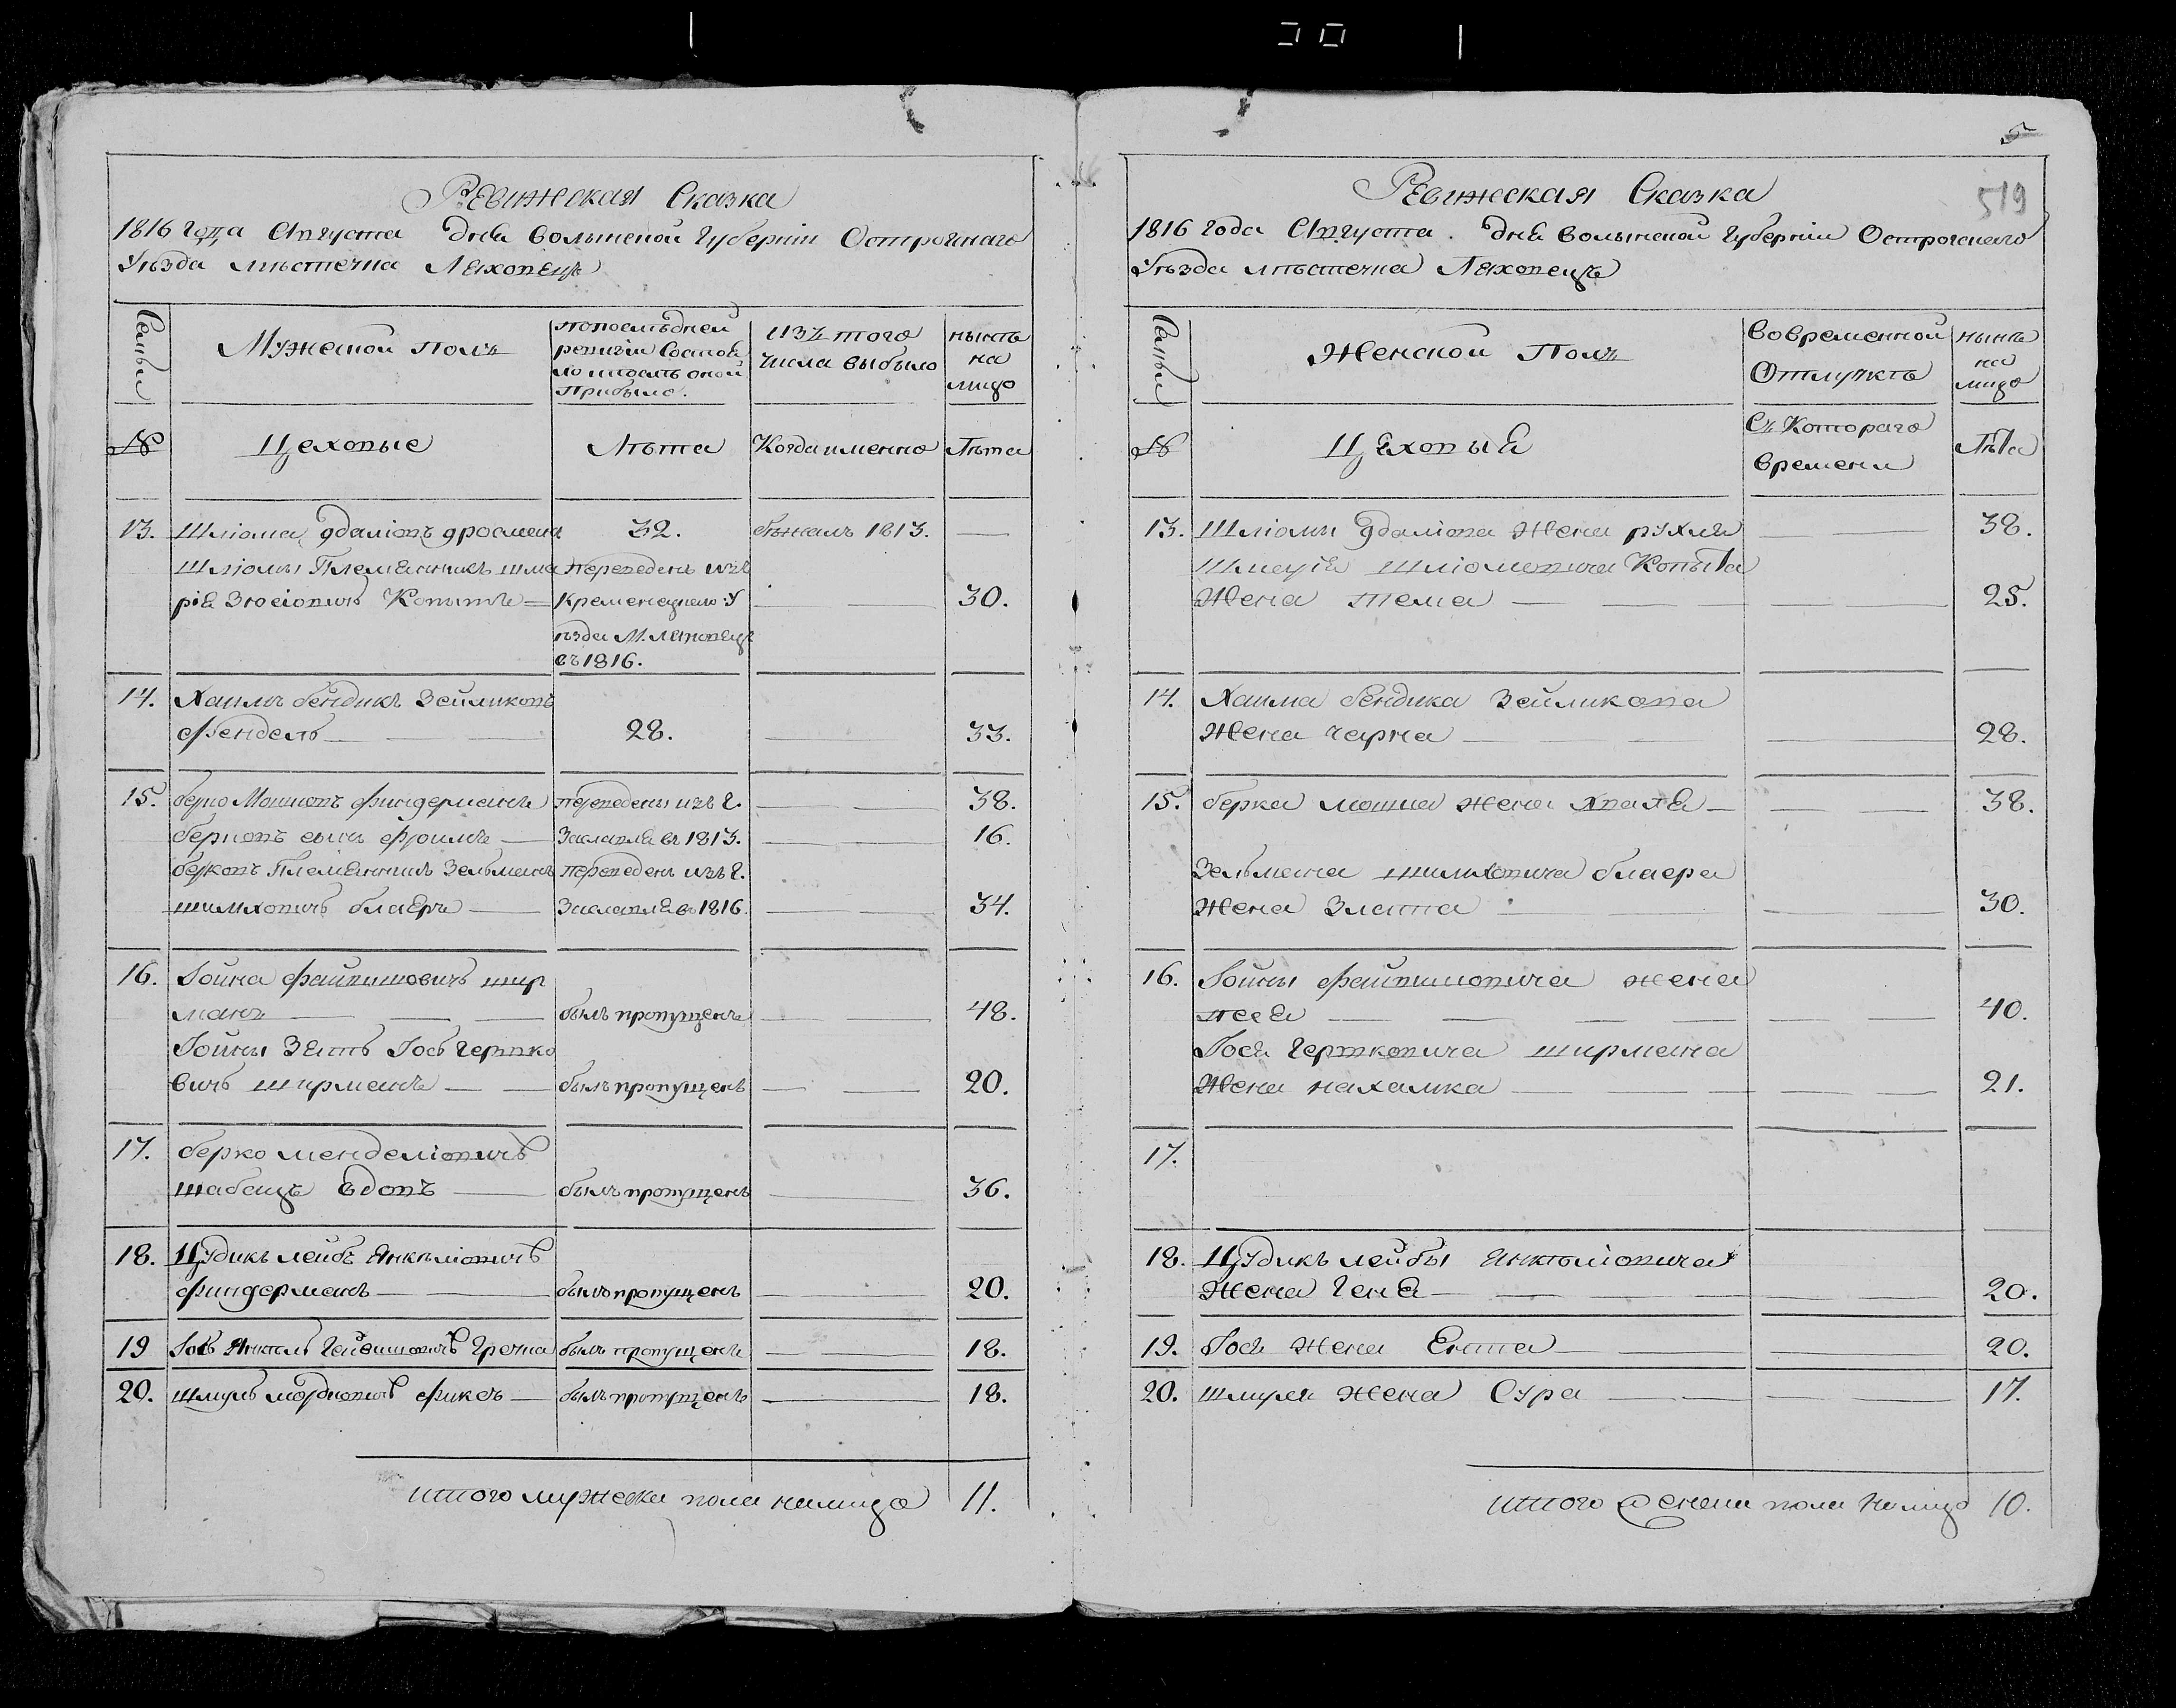 Ревижская Сказка
1816 года Августа дня Волынской Губернiи Острожнаго
Уѣзда мѣстечка Ляховецъ
Семьи
Мужеской полъ
попослѣдней
ревизiи Состоя
ло ипослѣ оной
Прибыло.
изъ того
числа выбыло
нынѣ
на
лицо
№
Цеховые
Лѣта
Когда именно
Лѣта
13. Шлiома 32. бѣжалъ 1813. —
Шлiомы Племянникъ Шма переведенъ изъ
рiя Копытъ — Кременецкаго У — — 30.
ѣзда М.
въ 1816.
14. Хаимъ бендикъ Зейликовъ
Фендель — — 28. — 33.
15. берко Мошковъ Финдерманъ переведены изъ г. — — 38.
берковъ сынъ Фроимъ — Заславля въ 1813. — — 16.
берковъ Племянникъ Зельманъ переведенъ изъ г.
шлиховичъ блаеръ — Заславля въ 1816. — — 34.
16. Гойна Файвишовичъ шир
манъ — — былъ пропущенъ — — 48.
Гойны Зять Гось Гершко
вичъ ширманъ — — былъ пропущенъ — — 20.
17. берко менделiовичъ
шабацъ — былъ пропущенъ — 36.
18. Цудикъ лейбъ Янкелiовичъ
Финдерманъ — былъ пропущенъ — — 20.
19 Янкель былъ пропущенъ — — 18.
20. шмуль мордковичъ Фиксъ — былъ пропущенъ — 18.
итого мужеска пола налицо 11.
5
519
Ревижская Сказка
1816 года Августа. дня Волынской Губернiи Острожскаго
Уѣзда мѣстечка Ляховецъ
Семьи
Женской Полъ
Вовременной
Отлучкѣ
нынѣ
на
лицо
№
Цеховыя
Съ Котораго
времени
Лѣта
13. Шлiомы жена рухля — — 38.
Копыта
Жена тема — — — — 25.
14. Хаима бендика Зейликова
Жена чарна — — 28.
15. берка мошка жена Хваля — — — 38.
Зельмана шлиховича блаера
Жена Злата — — — 30.
16. Гойны Файвишовича жена
песя — — — — — — 40.
Гося Гершковича ширмана
Жена нахамка — — — — — 21.
17.
18. Цудикъ лейбы Янкелiовича
Жена Геня — — — — — 20.
19. Гося жена Ента — — — 20.
20. шмуля жена Сура — — — — 17.
итого женска пола налицо 10.